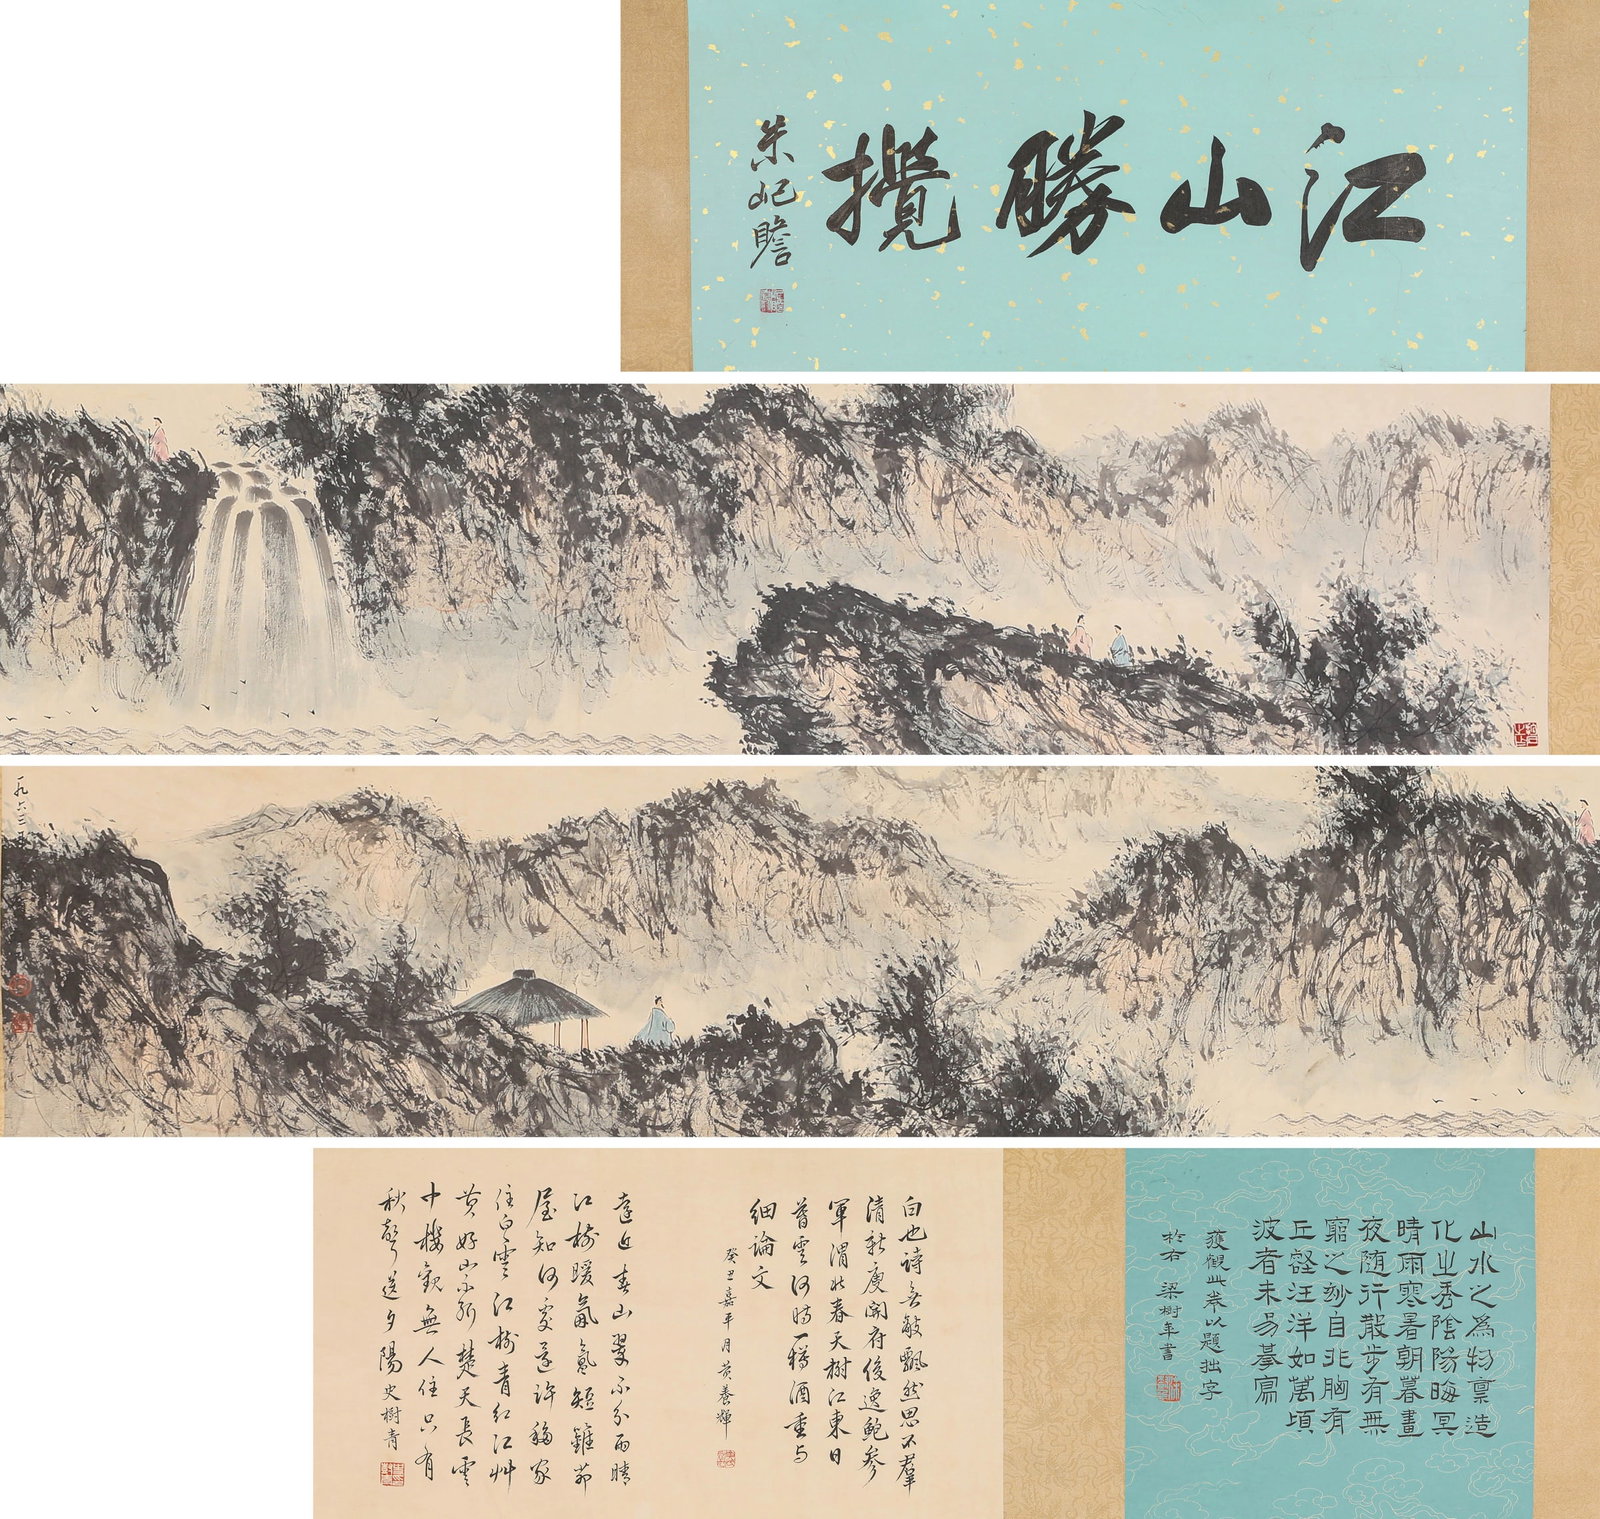 江山勝攬
朱屺瞻
一九六三年
山水之為物稟造
化之秀陰陽晦冥
晴雨寒暑朝暮晝
夜隨行散步有無
窮之妙自非胸有
丘壑汪洋如萬頃
波者未易摹寫
獲觀此卷以題拙字
於右 梁樹年書
白也詩無敵飄然思不羣
清新庾開府俊逸鮑參
軍渭北春天樹江東日
暮雲何時一樽酒重與
細論文
癸丑嘉平月黃養輝
遠近春山翠不分雨晴
江樹暖氤氳短籬茆
屋知何處遂許移家
住白雲江樹青紅江艸
黃好山不斷楚天長雲
中樓觀無人住只有
秋聲送夕陽 史樹青